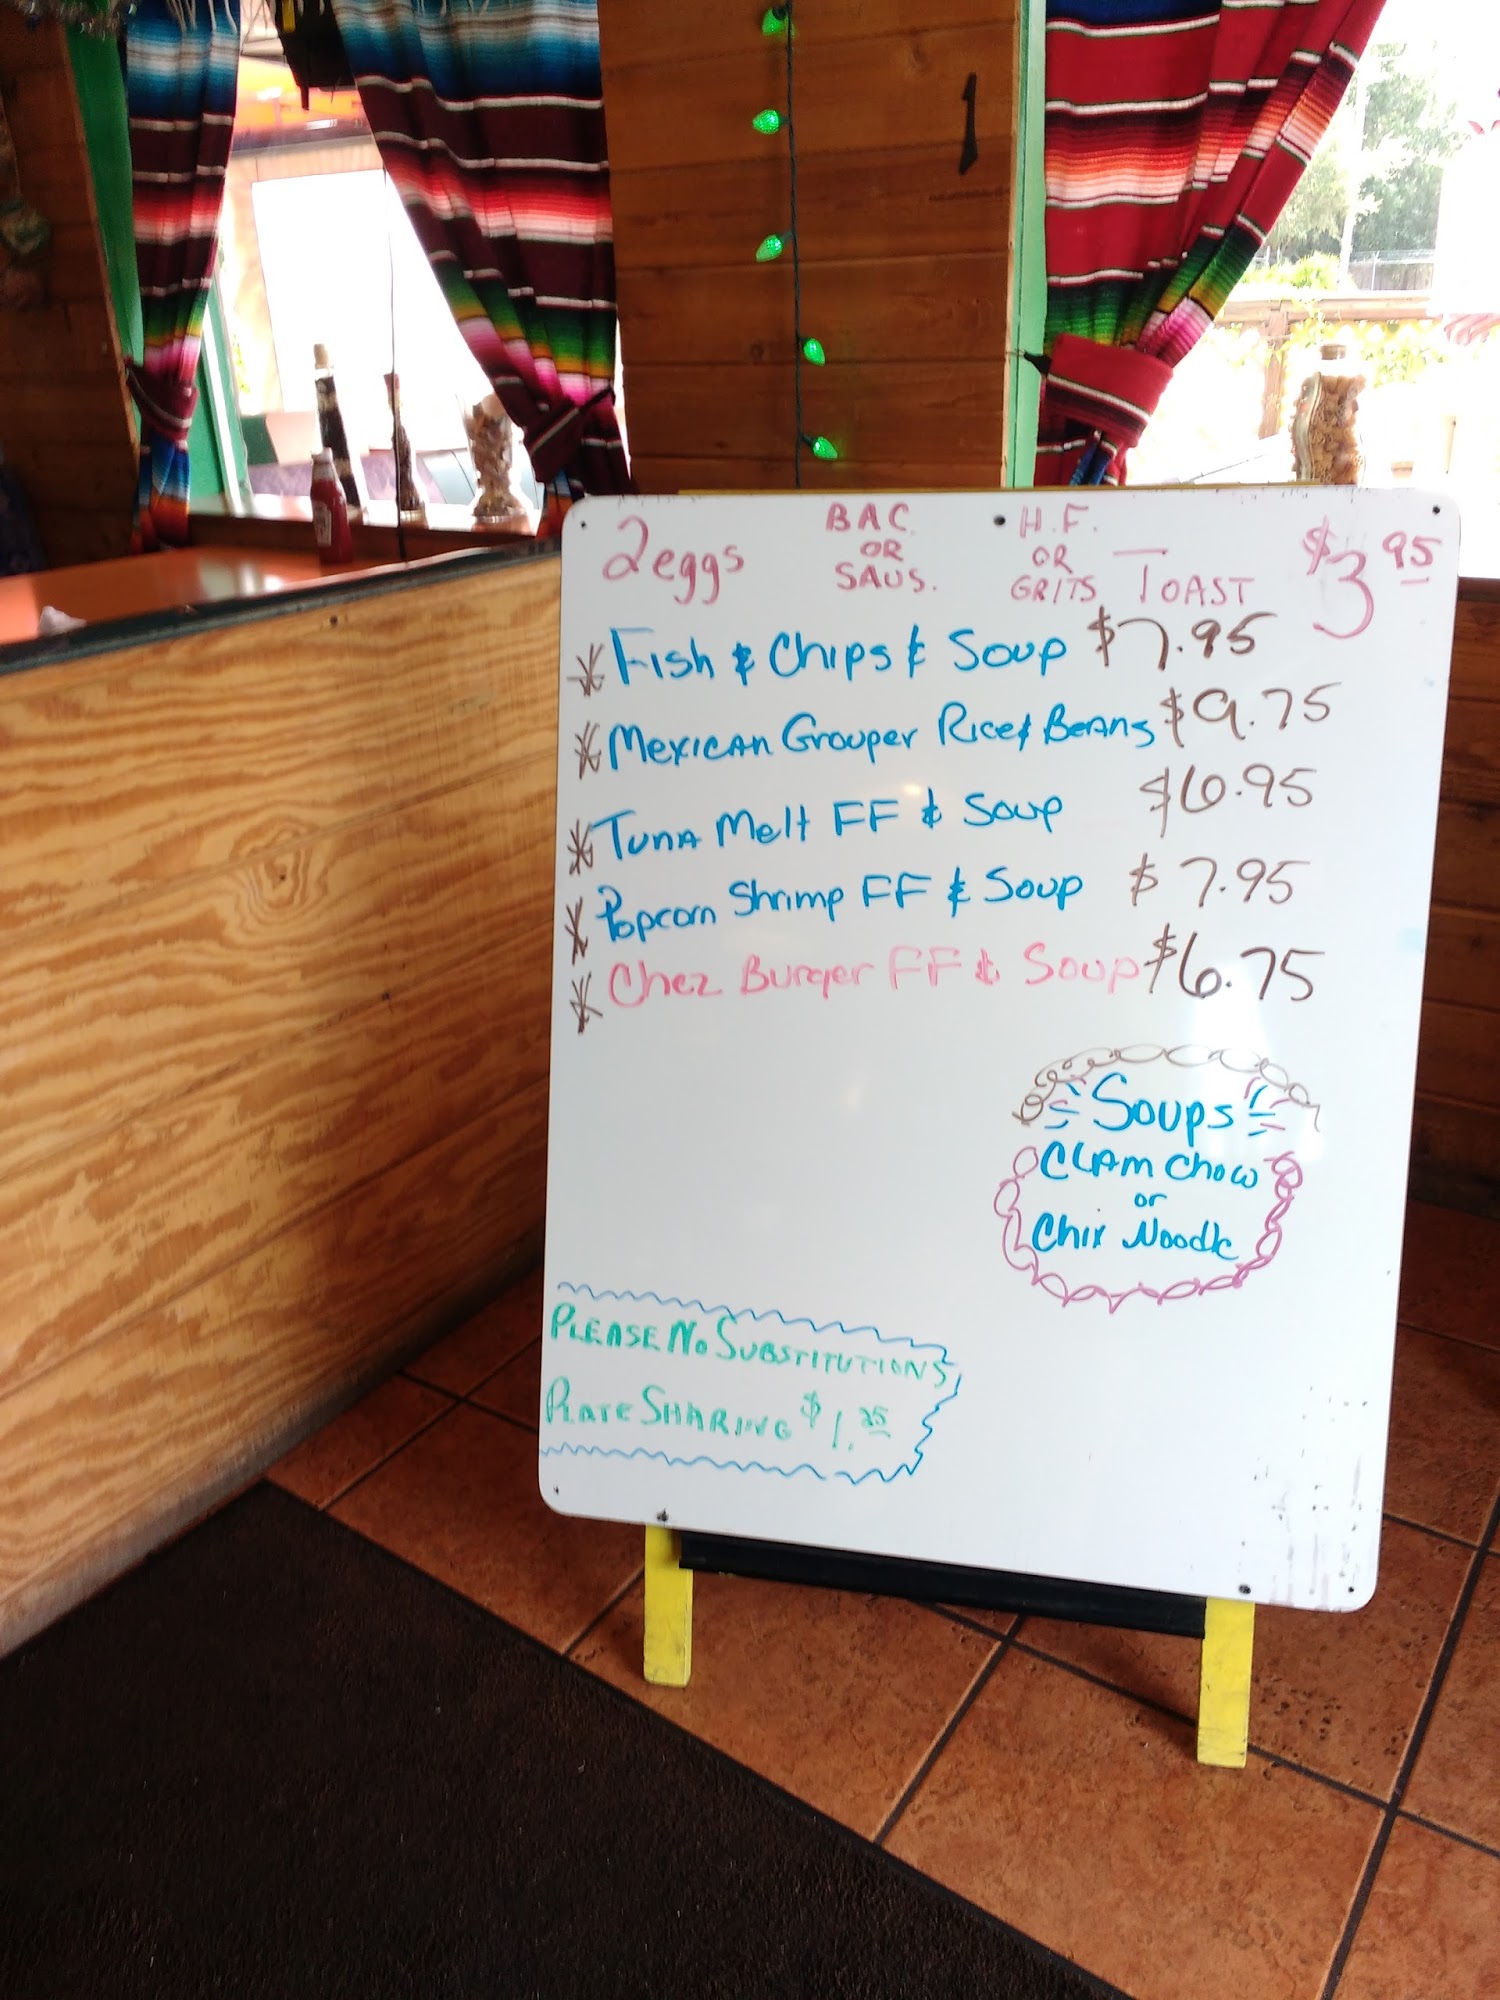 1
2 eggs BAC. OR SAUS. H.F. OR GRITS TOAST $3.95
Fish & Chips & Soup $7.95
Mexican Grouper Rice & Beans $9.75
Tuna Melt FF & Soup $6.95
Popcorn Shrimp FF & Soup $7.95
Chez Burger FF & Soup $6.75
Soups
Clam Chow
or
Chix Noodle
PLEASE NO SUBSTITUTIONS
PLATE SHARING $1.25